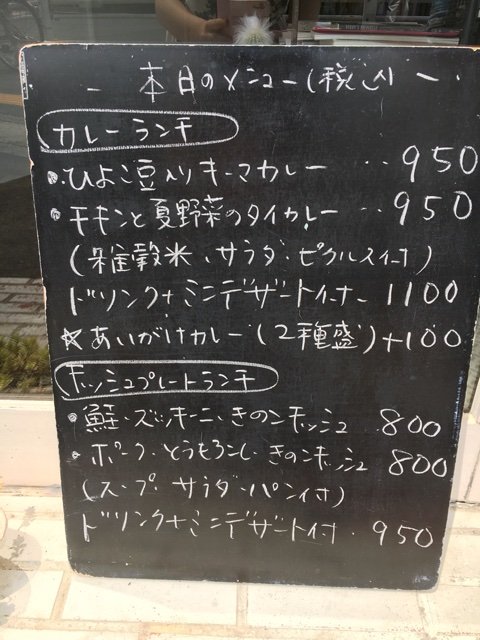 - 本日のメニュー(税込) -
カレーランチ
・ひよこ豆入りキーマカレー ‥950
・チキンと夏野菜のタイカレー ‥950
(雑穀米、サラダ・ピクルス付)
ドリンク+ミニデザート付 - 1100
☆あいがけカレー(2種盛)+100
キッシュプレートランチ
・鮭・ズッキーニ・きのこキッシュ 800
・ポーク・とうもろこし・きのこキッシュ 800
(スープ・サラダ・パン付)
ドリンク+ミニデザート付・950